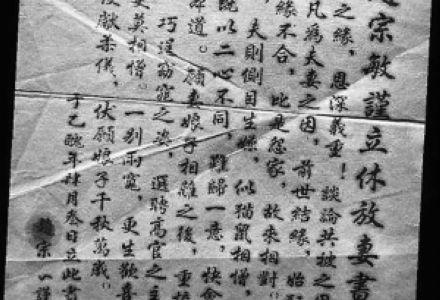 宗敏謹立休放妻書
之緣，恩深義重！談論共被之因
凡為夫妻之因，前世結緣，始
緣不合，比是怨家，故來相對
夫則側目生嫌，似猫鼠相憎，
既以二心不同，難歸一意，快會
道。願妻娘子相離之後，重梳
巧逞窈窕之姿，選聘高官之主
莫相憎。一別兩寬，更生歡喜
獻柔儀，伏願娘子千秋萬歲。
于乙醜年肆月叁日立此書
趙宗